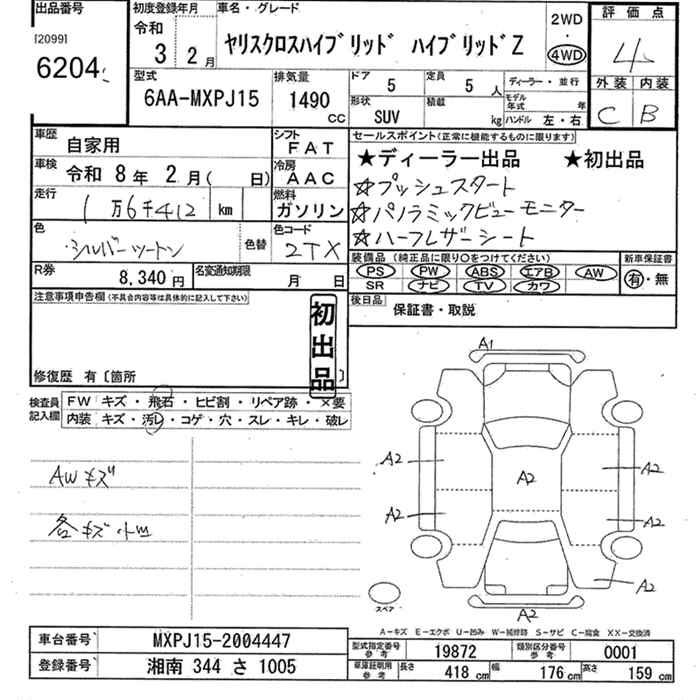 出品番号
[2099]
6204
初度登録年月
令和
3 年 2 月
車名・グレード
ヤリスクロスハイブリッド ハイブリッドZ
2WD
・
4WD
評価点
4
外装 内装
C B
型式
6AA-MXPJ15
排気量
1490
CC
ドア 5
定員 5 人
形状
SUV
積載
kg
ディーラー・並行
モデル年式 年
ハンドル 左・右
車歴 自家用
シフト
FAT
車検 令和 8年 2月( 日)
冷房
AAC
走行 1万6千412 km
燃料
ガソリン
色 シルバーツートン
色替
色コード
2TX
R券 8,340 円
名変通知期限 月 日
セールスポイント(正常に機能するものに限ります)
★ディーラー出品 ★初出品
☆プッシュスタート
☆パノラミックビューモニター
☆ハーフレザーシート
装備品 (純正品に限り○をつけてください)
PS PW ABS エアB AW
SR ナビ TV カワ
新車保証書
有・無
後日品 保証書・取説
注意事項申告欄(不具合内容等は具体的に記入して下さい)
初出品
修復歴 有〔箇所 〕
検査員記入欄
FW キズ・飛石・ヒビ割・リペア跡・×要
内装 キズ・汚レ・コゲ・穴・スレ・キレ・破レ
AWキズ
各キズ小凹
A1
A2
A2
A2
A2
A2
A2
A2
スペア
A-キズ E-エクボ U-凹み W-補修跡 S-サビ C-腐食 XX-交換済
車台番号 MXPJ15-2004447
登録番号 湘南 344 さ 1005
型式指定番号参考 19872
類別区分番号参考 0001
車庫証明用参考 長さ 418 cm 幅 176 cm 高さ 159 cm